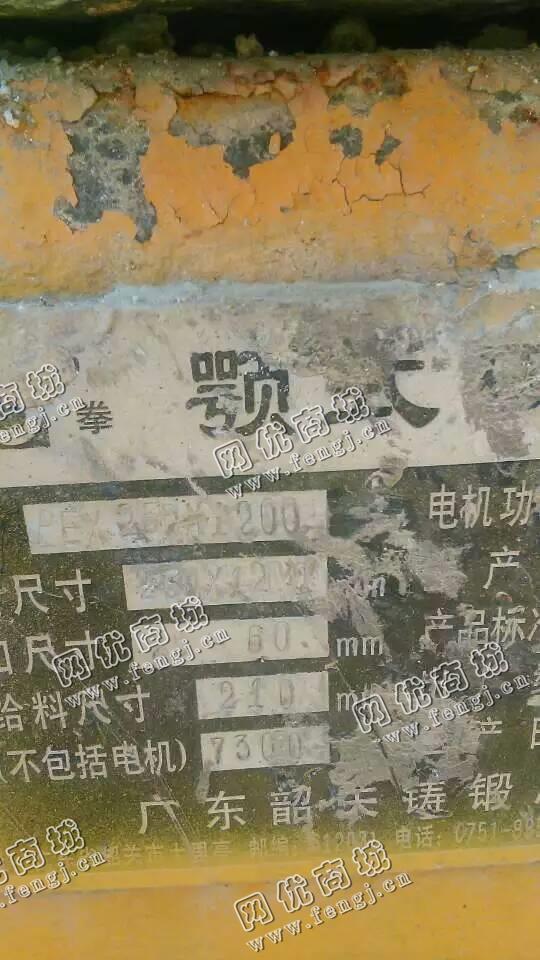 拳 颚式
PEX250X1200 电机功
尺寸 250X1200 mm 产
口尺寸 60 mm 产品标准
给料尺寸 210 m
(不包括电机) 7300 产
广东韶关铸锻
韶关市十里亭 邮编: 512031 电话: 0751-88
网优商城
www.fengj.cn
网优商城
www.fengj.cn
网优商城
www.fengj.cn
网优商城
www.fengj.cn
网优商城
www.fengj.cn
网优商城
www.fengj.cn